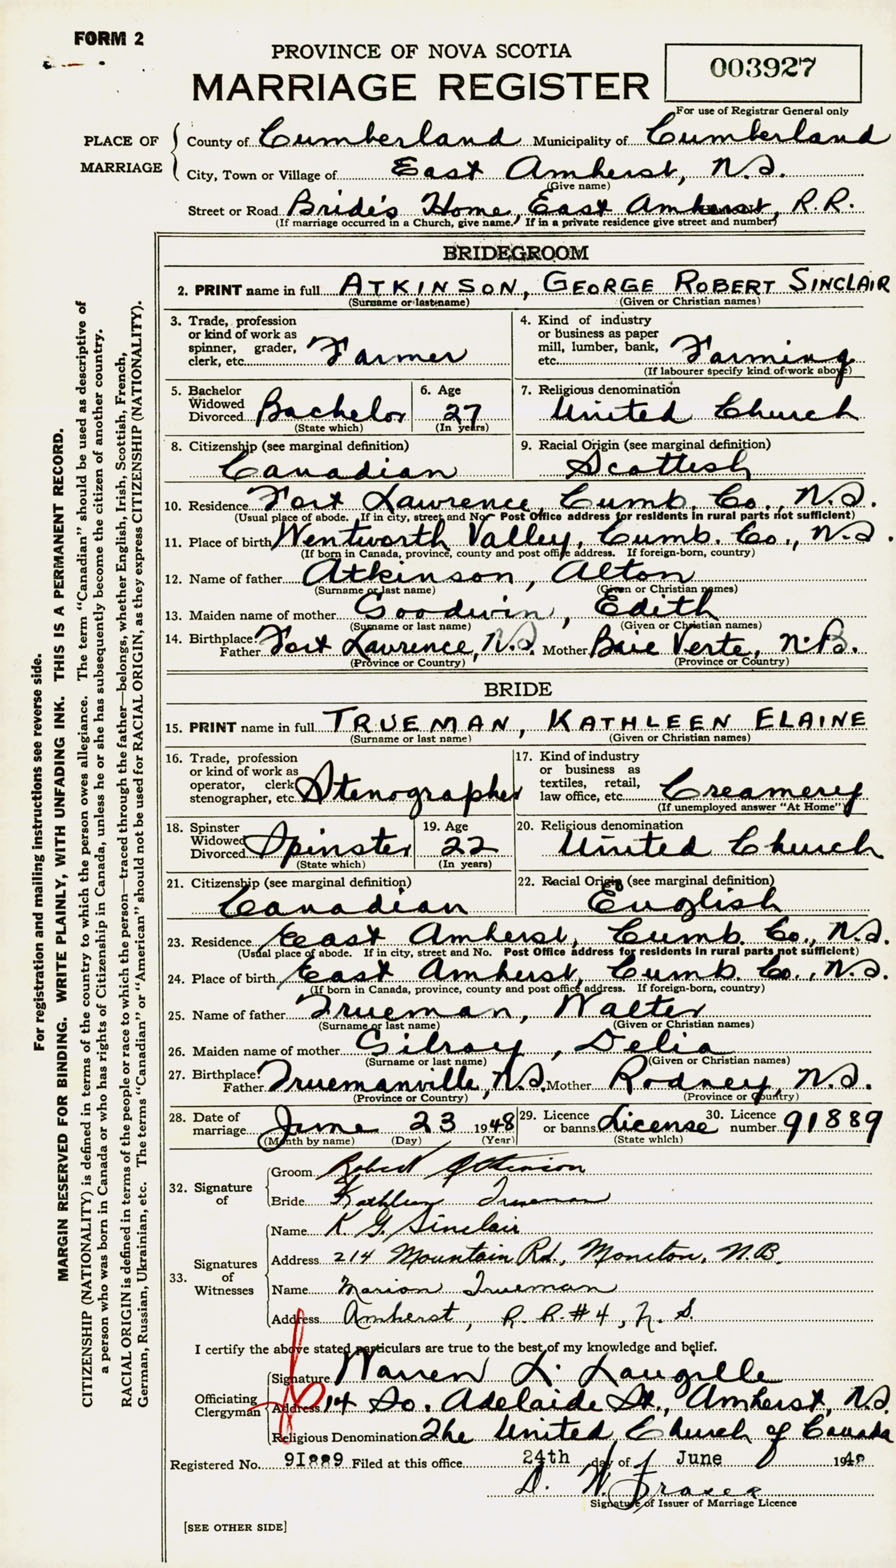 FORM 2
PROVINCE OF NOVA SCOTIA
MARRIAGE REGISTER
003927
For use of Registrar General only
PLACE OF MARRIAGE
County of Cumberland Municipality of Cumberland
City, Town or Village of East Amherst, N.S.
(Give name)
Street or Road Bride's Home, East Amherst, R.R.
(If marriage occurred in a Church, give name. If in a private residence give street and number)
BRIDEGROOM
2. PRINT name in full ATKINSON, GEORGE ROBERT SINCLAIR
(Surname or last name) (Given or Christian names)
3. Trade, profession or kind of work as spinner, grader, clerk, etc. Farmer
4. Kind of industry or business as paper mill, lumber, bank, etc. Farming
(If labourer specify kind of work above)
5. Bachelor Widowed Divorced Bachelor
(State which)
6. Age 27
(In years)
7. Religious denomination United Church
8. Citizenship (see marginal definition) Canadian
9. Racial Origin (see marginal definition) Scottish
10. Residence Fort Lawrence, Cumb. Co., N.S.
(Usual place of abode. If in city, street and No. Post Office address for residents in rural parts not sufficient)
11. Place of birth Wentworth Valley, Cumb. Co., N.S.
(If born in Canada, province, county and post office address. If foreign-born, country)
12. Name of father Atkinson, Alton
(Surname or last name) (Given or Christian names)
13. Maiden name of mother Goodwin, Edith
(Surname or last name) (Given or Christian names)
14. Birthplace: Father Fort Lawrence, N.S. Mother Baie Verte, N.B.
(Province or Country) (Province or Country)
BRIDE
15. PRINT name in full TRUEMAN, KATHLEEN ELAINE
(Surname or last name) (Given or Christian names)
16. Trade, profession or kind of work as operator, clerk, stenographer, etc. Stenographer
17. Kind of industry or business as textiles, retail, law office, etc. Creamery
(If unemployed answer "At Home")
18. Spinster Widowed Divorced Spinster
(State which)
19. Age 22
(In years)
20. Religious denomination United Church
21. Citizenship (see marginal definition) Canadian
22. Racial Origin (see marginal definition) English
23. Residence East Amherst, Cumb. Co., N.S.
(Usual place of abode. If in city, street and No. Post Office address for residents in rural parts not sufficient)
24. Place of birth East Amherst, Cumb. Co., N.S.
(If born in Canada, province, county and post office address. If foreign-born, country)
25. Name of father Trueman, Walter
(Surname or last name) (Given or Christian names)
26. Maiden name of mother Gilroy, Delia
(Surname or last name) (Given or Christian names)
27. Birthplace: Father Truemanville, N.S. Mother Rodney, N.S.
(Province or Country) (Province or Country)
28. Date of marriage June 23 1948
(Month by name) (Day) (Year)
29. Licence or banns License
(State which)
30. Licence number 91889
32. Signature of
Groom Robert Atkinson
Bride Kathleen Trueman
33. Signatures of Witnesses
Name K G Sinclair
Address 214 Mountain Rd., Moncton, N.B.
Name Marion Trueman
Address Amherst, R.R.#4, N.S.
I certify the above stated particulars are true to the best of my knowledge and belief.
Officiating Clergyman
Signature Warren L.
Address 14 So. Adelaide St., Amherst, N.S.
Religious Denomination The United Church of Canada
Registered No. 91889 Filed at this office 24th day of June 1948
D. W. Fraser
Signature of Issuer of Marriage Licence
[SEE OTHER SIDE]
For registration and mailing instructions see reverse side.
MARGIN RESERVED FOR BINDING. WRITE PLAINLY, WITH UNFADING INK. THIS IS A PERMANENT RECORD.
CITIZENSHIP (NATIONALITY) is defined in terms of the country to which the person owes allegiance. The term "Canadian" should be used as descriptive of
a person who was born in Canada or who has rights of Citizenship in Canada, unless he or she has subsequently become the citizen of another country.
RACIAL ORIGIN is defined in terms of the people or race to which the person—traced through the father—belongs, whether English, Irish, Scottish, French,
German, Russian, Ukrainian, etc. The terms "Canadian" or "American" should not be used for RACIAL ORIGIN, as they express CITIZENSHIP (NATIONALITY).